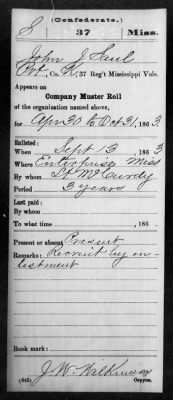 (Confederate.)
S 37 Miss.
John J Saul
Pvt, Co. K, 37 Reg't Mississippi Vols.
Appears on
Company Muster Roll
of the organization named above,
for Apr 30 to Oct 31, 1863
Enlisted:
When Sept 13, 1863
Where Enterprise Miss
By whom Lt McCurdy
Period 3 years
Last paid:
By whom
To what time , 186 .
Present or absent Present
Remarks: Recruit by en-
listment
Book mark:
J. W. Wilkinson
(642) Copyist.